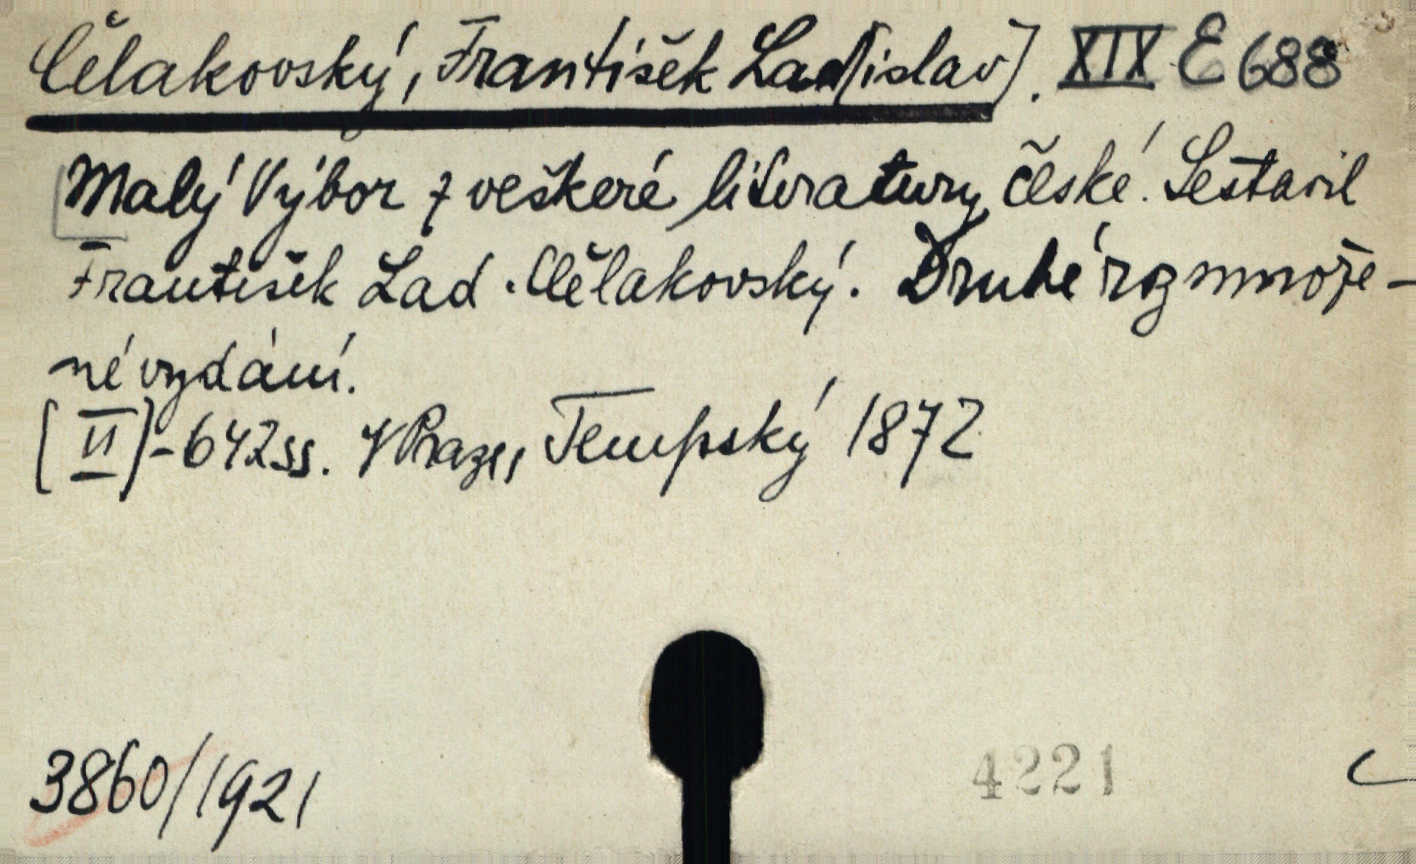 Čelakovský, František Lad[islav]. XIX E 688
Malý Výbor z veškeré literatury české. Sestavil
František Lad. Čelakovský. Druhé rozmnože-
né vydání.
[II]-642 ss. V Praze, Tempský 1872
3860/1921
4221